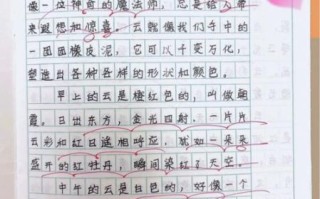 像一位神奇的魔法师，总是给人带
来遐想和惊喜。云就像我们手中的
一团团橡皮泥，它可以千变万化，
塑造出各种各样的形状和颜色。
早上的云是橙红色的，叫做朝
霞。日出东方，金光四射，一片片
云彩和红日遥相呼应，就如一朵朵
盛开的红牡丹，瞬间染红了天空。
中午的云是白色的，好像一个